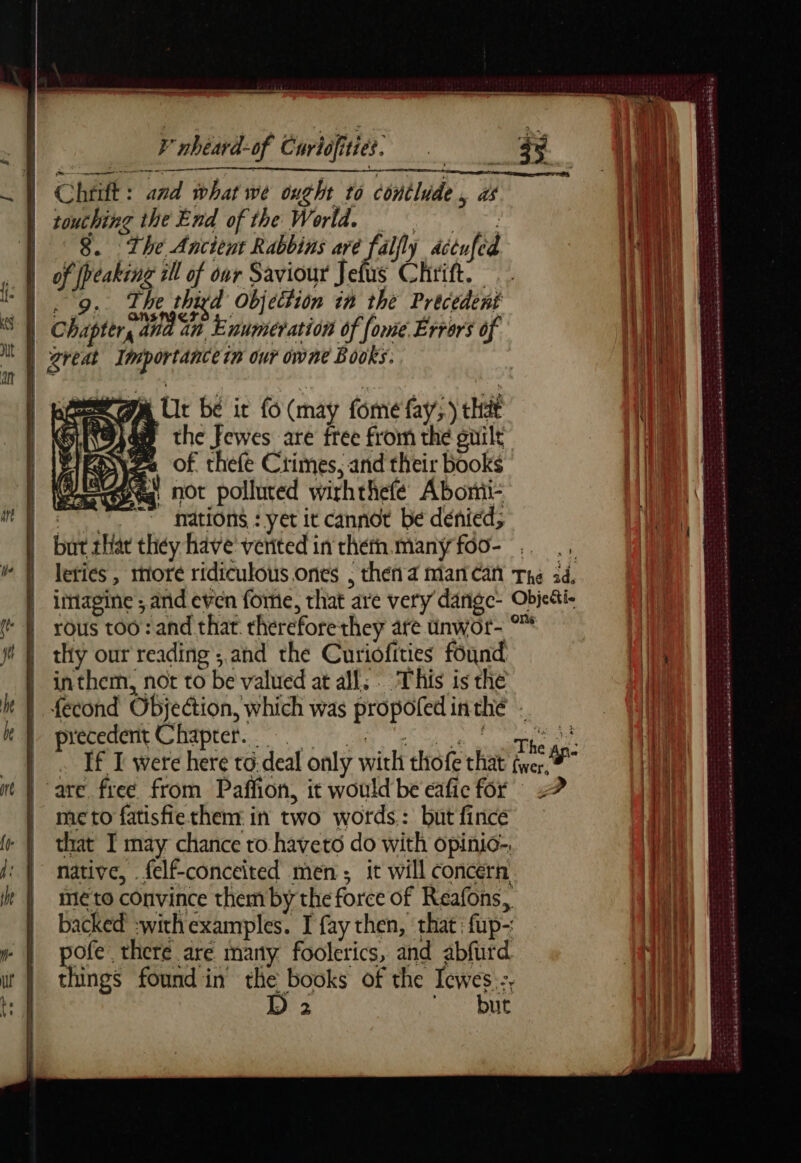 Vnheard-of Curiosities. 35
Christ: and what we ought to conclude, as
touching the End of the World.
8. The Ancient Rabbins are falsly accused
of speaking ill of our Saviour Jesus Christ.
9. The third Objection in the Precedent
answered
Chapter, and an Enumeration of some Errors of
great Importance in our owne Books.
BUt be it so (may some say,) that
the Jewes are free from the guilt
of these Crimes, and their books
not polluted with these Abomi-
nations: yet it cannot be denied,
but that they have vented in them many foo-
leries, more ridiculous ones, then a man can
imagine; and even some, that are very dange-
rous too: and that therefore they are unwor-
thy our reading; and the Curiosities found
in them, not to be valued at all. This is the
second Objection, which was proposed in the
precedent Chapter.
The 2d.
Objecti-
ons
If I were here to deal only with those that
are free from Passion, it would be easie for
me to satisfie them in two words: but since
that I may chance to have to do with opinio-
native, self-conceited men; it will concern
me to convince them by the force of Reasons,
backed with examples. I say then, that sup-
pose there are many fooleries, and absurd
things found in the books of the Iewes;
The An-
swer.
D 2 but